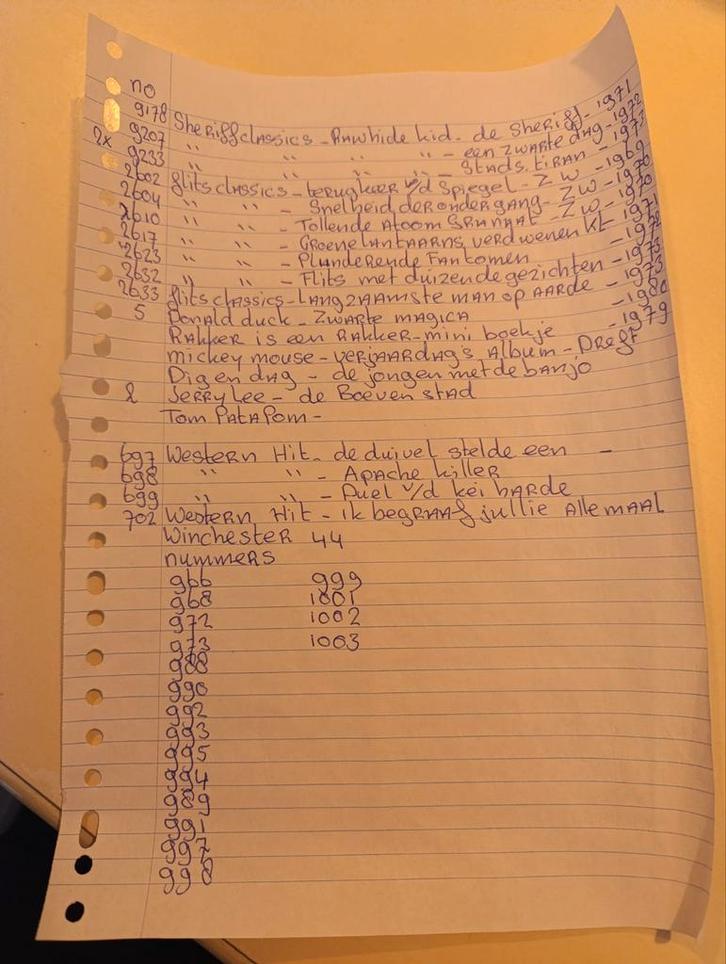 no
9178 Sheriffclassics - Rawhide kid - de Sheriff - 1971
2x 9207 " " " " - een zwarte dag - 1972
9233 " " " " - Stads tiran - 1973
2602 flitsclassics - terugkeer v/d Spiegel - ZW - 1969
2604 " " - Snelheid der ondergang - ZW - 1970
2610 " " - Tollende Atoom Granaat - ZW - 1970
2617 " " - Groene Lantaarns verdwenen Kt - 1971
2623 " " - Plunderende Fantomen - 1972
2632 " " - Flits met duizende gezichten - 1973
2633 flitsclassics - Langzaamste man op AARde - 1973
5 Donald duck - Zwarte magica - 1980
Rakker is een Rakker - mini boekje - 1979
mickey mouse - verjaardags Album - Dreft
Dig en dag - de jongen met de banjo
2 Jerry Lee - de Boevenstad
Tom Patapom -
697 Western Hit - de duivel stelde een -
698 " " - Apache killer
699 " " - Duel v/d kei harde
702 Western Hit - ik begraaf jullie Allemaal
Winchester 44
nummers
966 999
968 1001
972 1002
973 1003
988
990
992
993
995
994
989
991
997
998